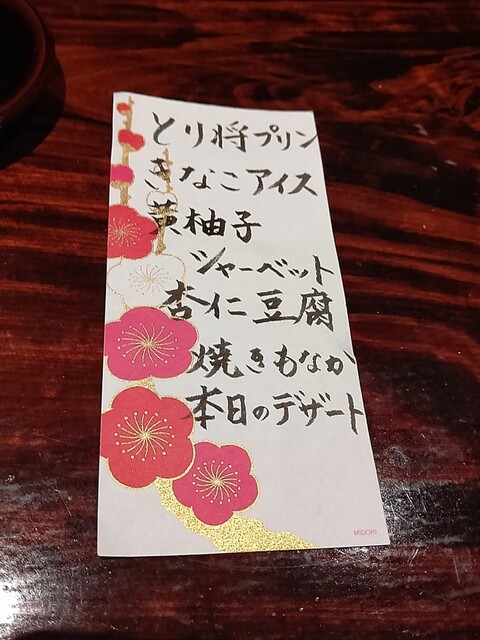 とり将プリン
きなこアイス
黄柚子
シャーベット
杏仁豆腐
焼きもなか
本日のデザート
MIDORI